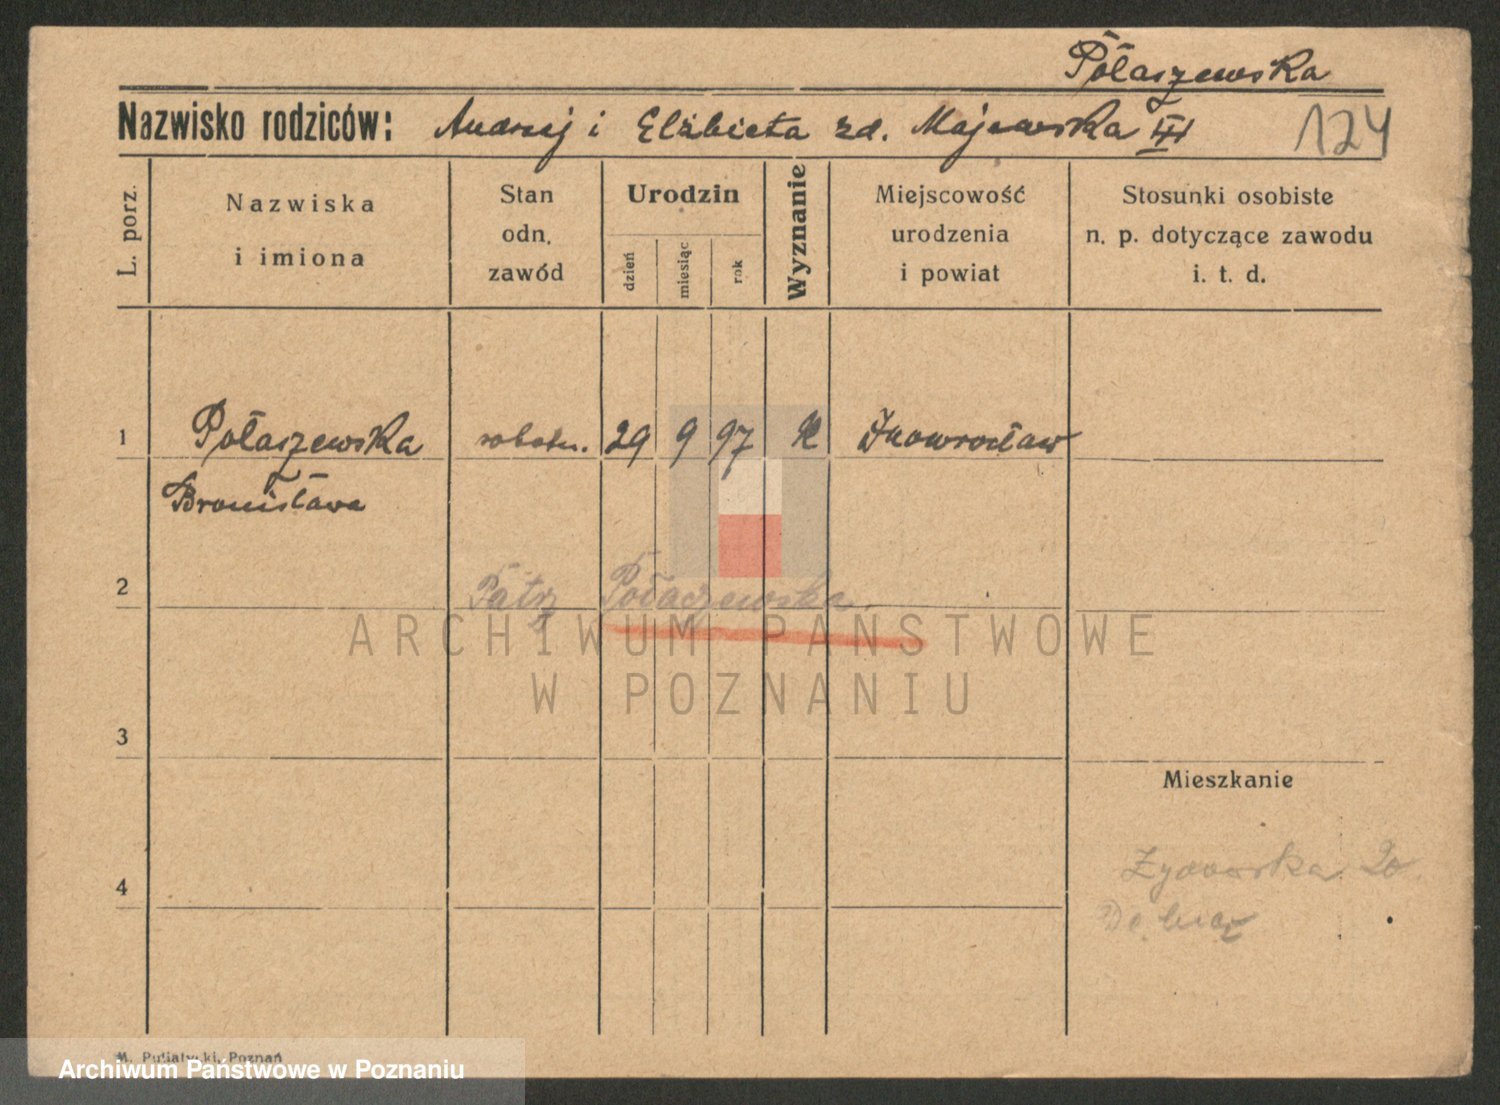 Połaszewska
Nazwisko rodziców: Andrzej i Elżbieta zd. Majewska III
124
L. porz.
Nazwiska
i imiona
Stan
odn.
zawód
Urodzin
dzień
miesiąc
rok
Wyznanie
Miejscowość
urodzenia
i powiat
Stosunki osobiste
n. p. dotyczące zawodu
i. t. d.
1 Połaszewska robotn. 29 9 97 K Inowrocław
Bronisława
2 Patrz Połaczewska.
ARCHIWUM PAŃSTWOWE
W POZNANIU
3
Mieszkanie
4
Żydowska 20
M. Putiatycki, Poznań
Archiwum Państwowe w Poznaniu